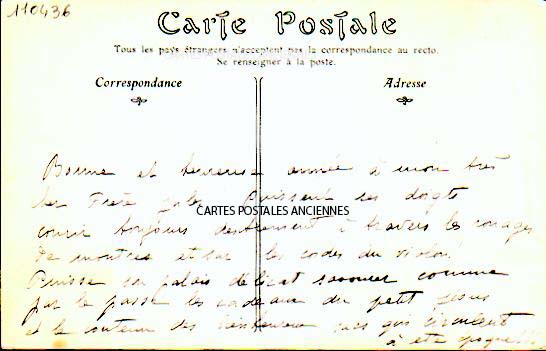 110436
Carte Postale
Tous les pays étrangers n'acceptent pas la correspondance au recto.
Se renseigner à la poste.
Correspondance
Adresse
Bonne et heureuse année à mon très
cher Frère Puissent ses doigts
CARTES POSTALES ANCIENNES
courir toujours à travers les rouages
de montres et sur les cordes du violon
Puisse son palais délicat savourer comme
par le passé les cadeaux du petit Jesus
et le contenu des qui
à été